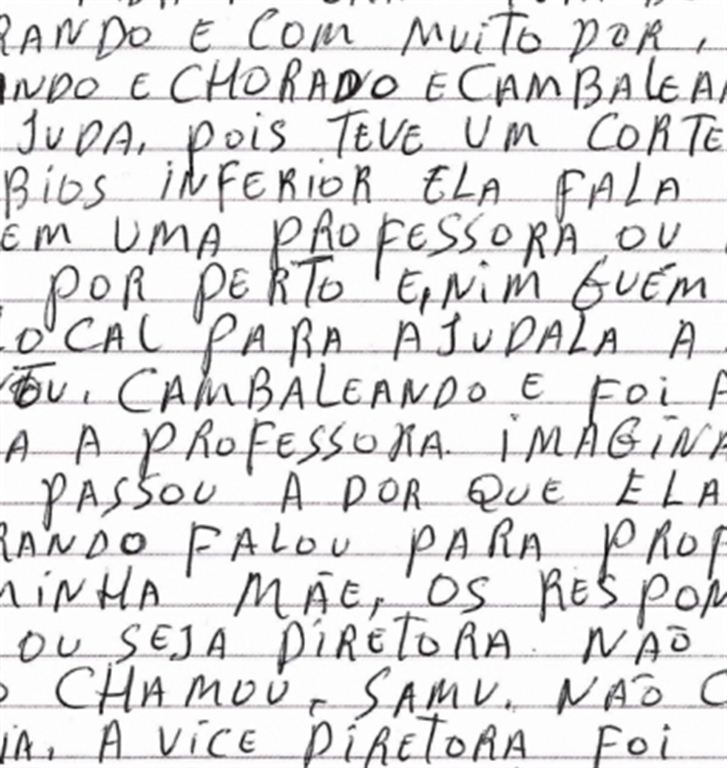 RANDO E COM MUITO DOR,
INDO E CHORADO E CAMBALEA
JUDA, POIS TEVE UM CORTE
BIOS INFERIOR ELA FALA
EM UMA PROFESSORA OU
POR PERTO E, NIMGUÉM
LOCAL PARA AJUDALA A
CAMBALEANDO E FOI A
A A PROFESSORA. IMAGINA
PASSOU A DOR QUE ELA
RANDO FALOU PARA PROF
MINHA MÃE, OS RESPON
OU SEJA DIRETORA NÃO
O CHAMOU, SAMU. NÃO C
IA. A VICE DIRETORA FOI